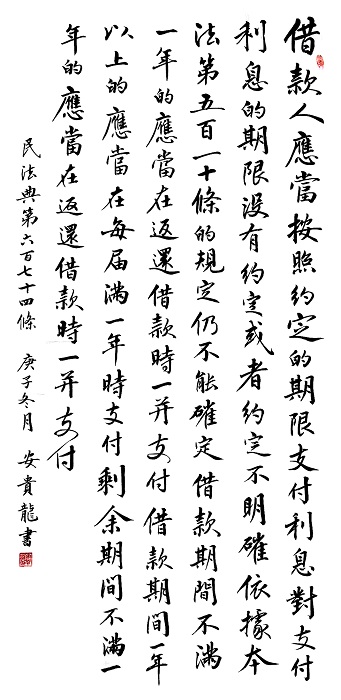 借款人應當按照約定的期限支付利息對支付
利息的期限没有約定或者約定不明確依據本
法第五百一十條的規定仍不能確定借款期間不滿
一年的應當在返還借款時一并支付借款期間一年
以上的應當在每届滿一年時支付剩余期間不滿一
年的應當在返還借款時一并支付
民法典第六百七十四條 庚子冬月 安貴龍書